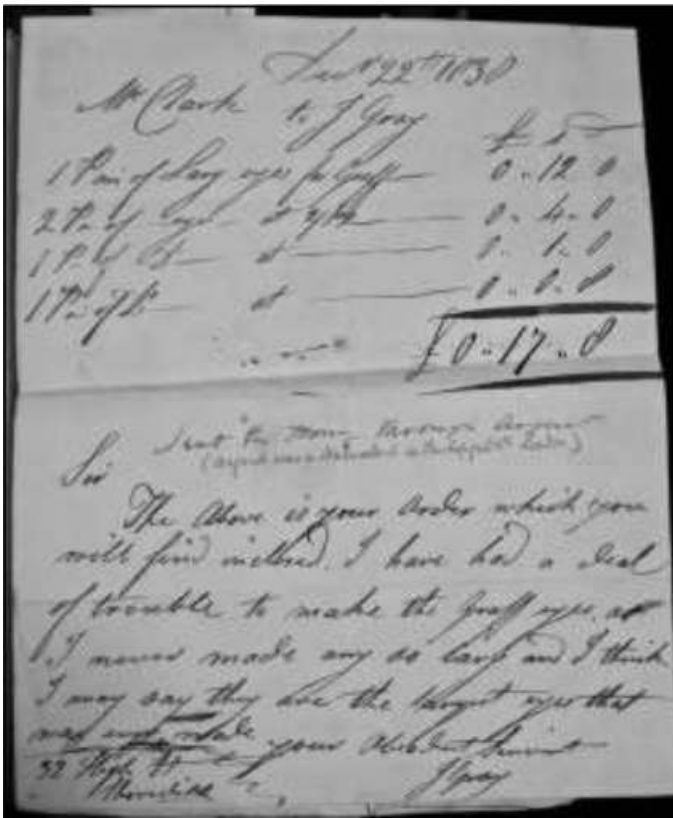 22th 1838
Mr Clark to J Gray
£ s
1 Pair of Larg eyes for Graff 0 .. 12 0
2 Pr of eyes at 0 .. 4 .. 0
1 Pr of at 0 .. 1 .. 0
1 Pr of at 0 .. 0 .. 8
£ 0 .. 17 .. 8
Sent the through
Sir
The Above is your Order which you
will find inclosed. I have had a deal
of trouble to make the Graff eyes, as
I never made any so larg and I think
I may say they are the largest eyes that
was ever made your Obedient Servant
32 High St J Gray